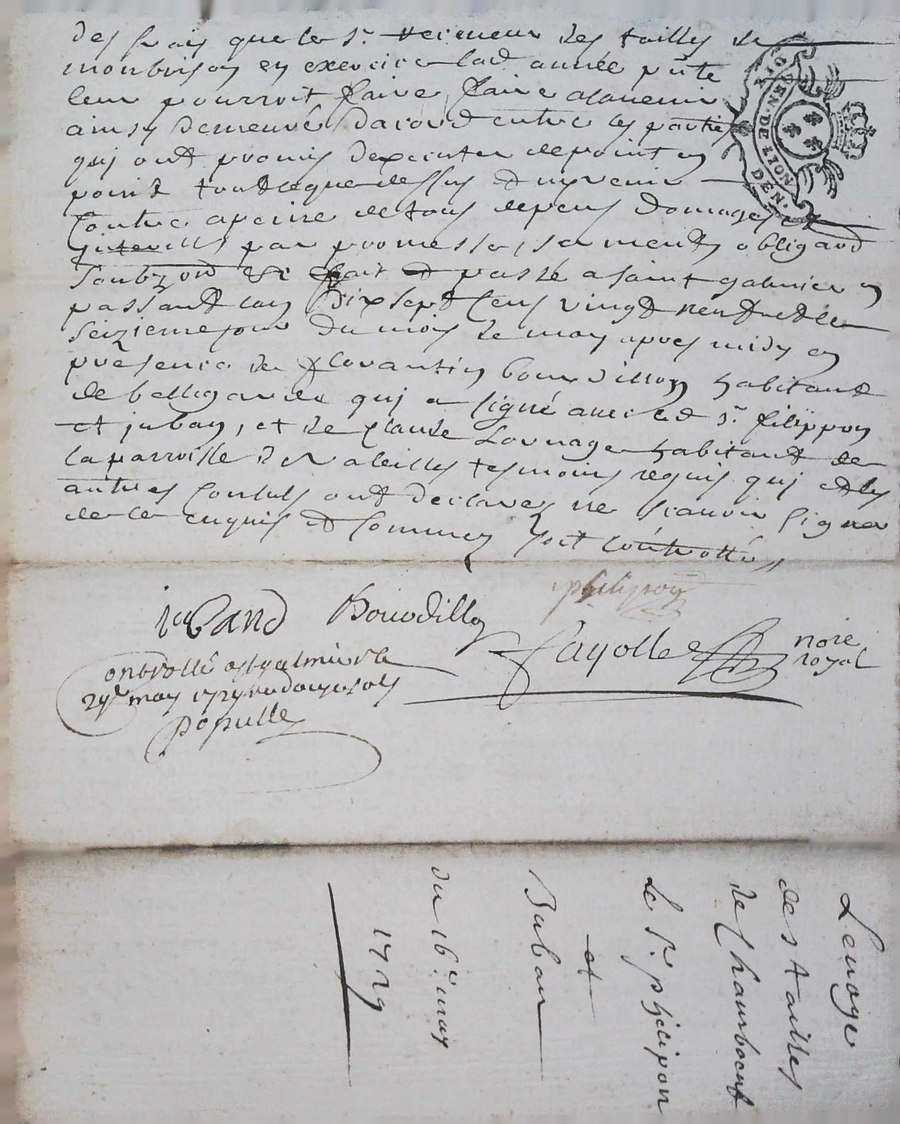 des frais que le Sr receveur des tailles de
montbrison en exercice lad année pnte
leur pourroit faire faire alavenir
ainsy demeuré dacord entre les parties
qui ont promis dexecuter de point en
point tout ceque dessus et ny venir
contre apeine de tous depens domages et
par promesse, serments obligaōn
fait et passé a saint galmier en
passant lan dix sept cens vingt neuf et le
seizieme jour du mois de may apres midy en
presence de florantin bourdillon habitant
de bellegarde qui a signé avec led Sr filippon
et juban, et de claude habitant de
la parroisse de valeilles tesmoins requis qui et les
autres consuls ont declarez ne scavoir signer
de ce enquis et sommez soit controllé
juband Bourdillon philipon
fayolle nore
royal
Controllé a st galmier le
29e may 1729 douze sols
Populle
DEN. GEN. DE LION
Levage
des tailles
de Chamboeuf
Le Sr philipon
et
Juban
du 16e may
1729